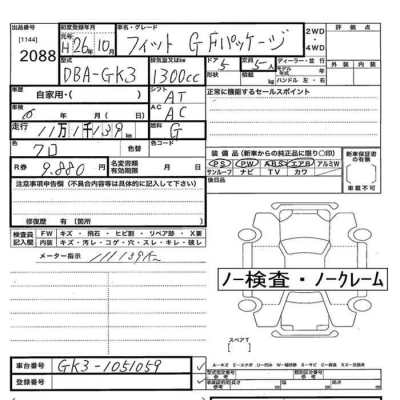 出品番号 初度登録年月 車名・グレード 2WD 評価点
[1144] 元号 H 26年 10月 フィット G Fパッケージ ・4WD
2088 型式 排気量又はcc ドア 定員 ディーラー・並行 外装 内装
DBA-GK3 1300cc 5 5人
積載量 kg ハンドル 左・右
車歴 自家用・( ) シフト AT 正常に機能するセールスポイント
車検 年 月 エアコン AC AC
走行 11万1千139km 燃料 G
色 クロ 色コード 装備品 (新車からの純正品に限り○印) 新車保証書の有無
R券 9,880円 名変期限 PS PW ABS エアB アルミW
サンルーフ ナビ TV カワ 有
注意事項申告欄 (不具合内容等は具体的に記入して下さい) 後日品 車載不可
修復歴 有 (箇所 )
検査員記入欄 FW キズ・飛石・ヒビ割・リペア跡・X要
内装 キズ・汚レ・コゲ・穴・スレ・キレ・破レ
メーター指示 111139K
ノー検査・ノークレーム
スペアT
車台番号 GK3-1051059
登録番号